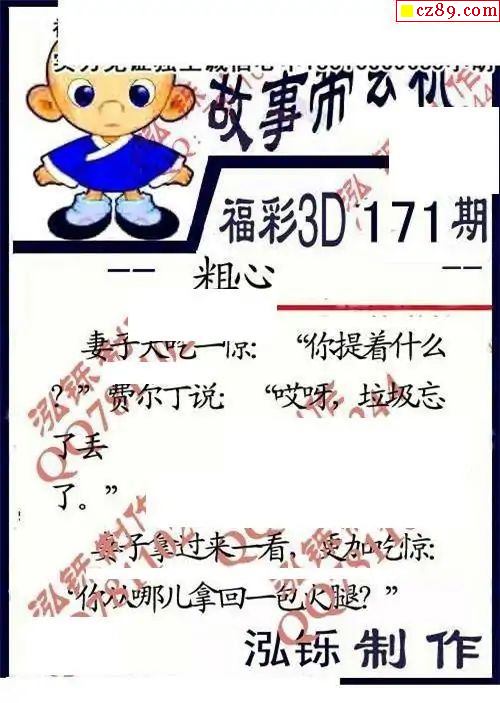 cz89.com
故事带玄机
福彩3D 171期
-- 粗心 --
妻子大吃一惊：“你提着什么
？”费尔丁说：“哎呀，垃圾忘
了丢
了。”
妻子拿过来一看，更加吃惊：
“你从哪儿拿回一包火腿？”
泓铄制作